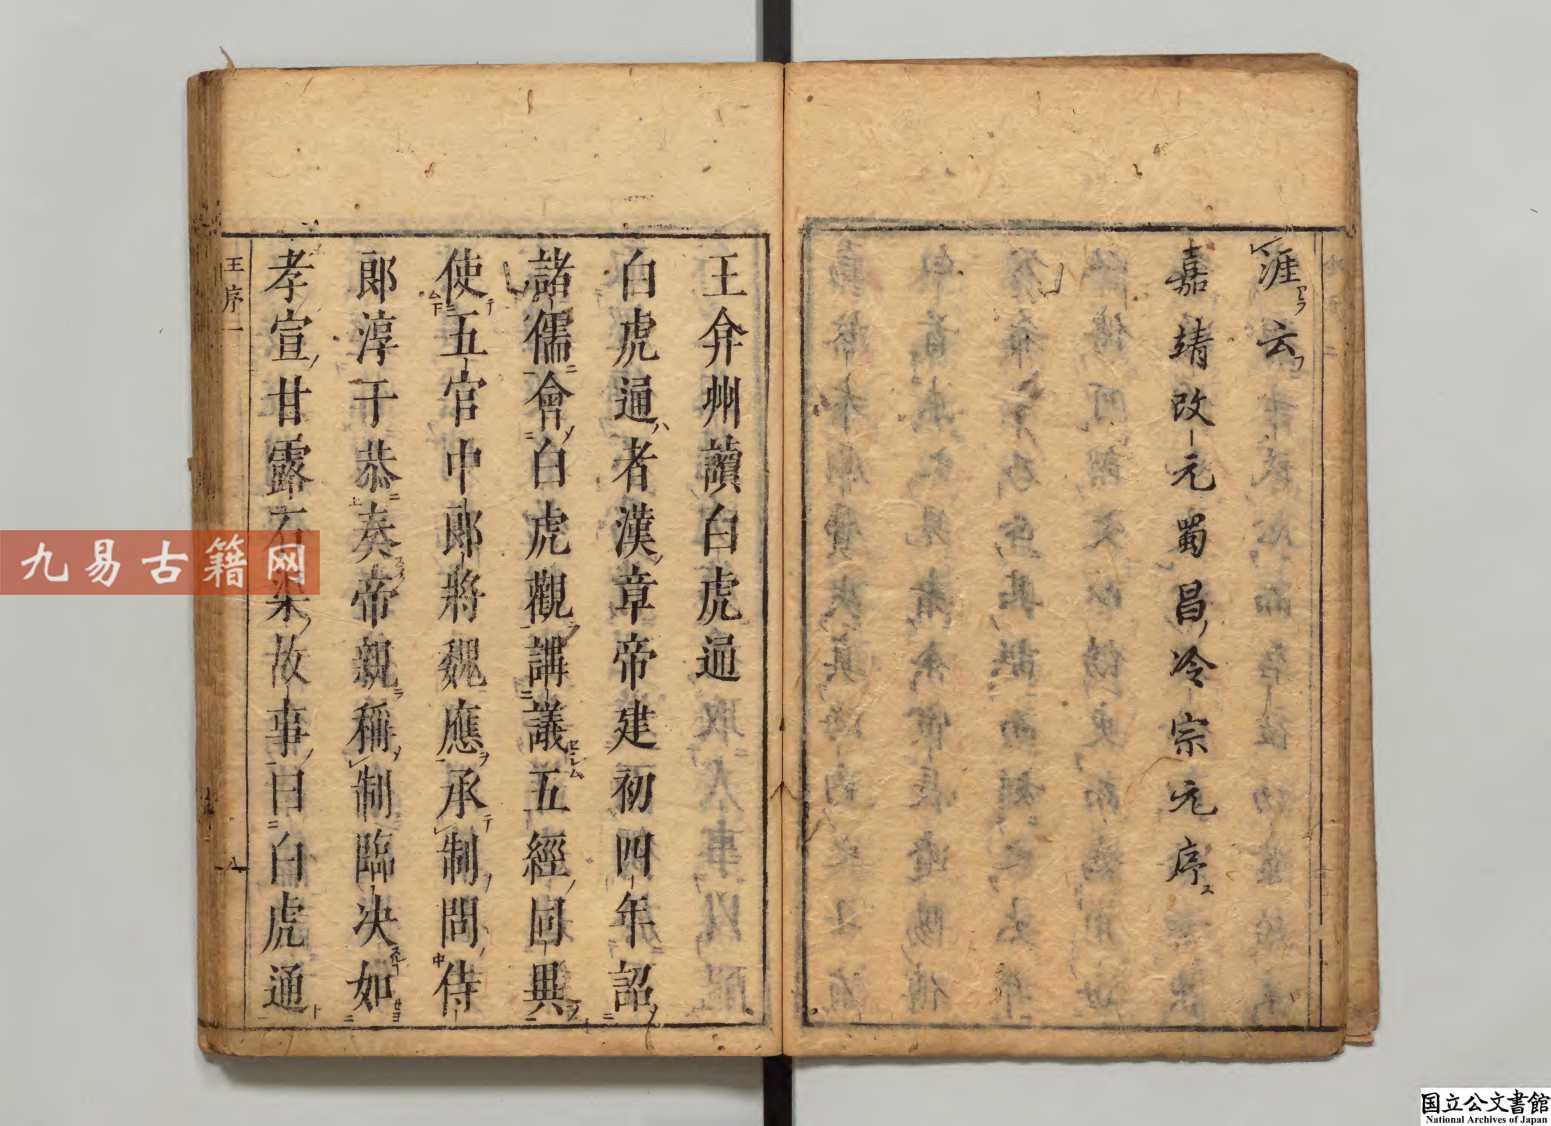 涯云
嘉靖改元蜀昌冷宗元序
王弇州讀白虎通
白虎通者漢章帝建初四年詔
諸儒會白虎觀講議五經同異
使五官中郎將魏應承制問侍
郎淳于恭奏帝親稱制臨决如
孝宣甘露石渠故事目曰白虎通
王序一
九易古籍网
国立公文書館
National Archives of Japan